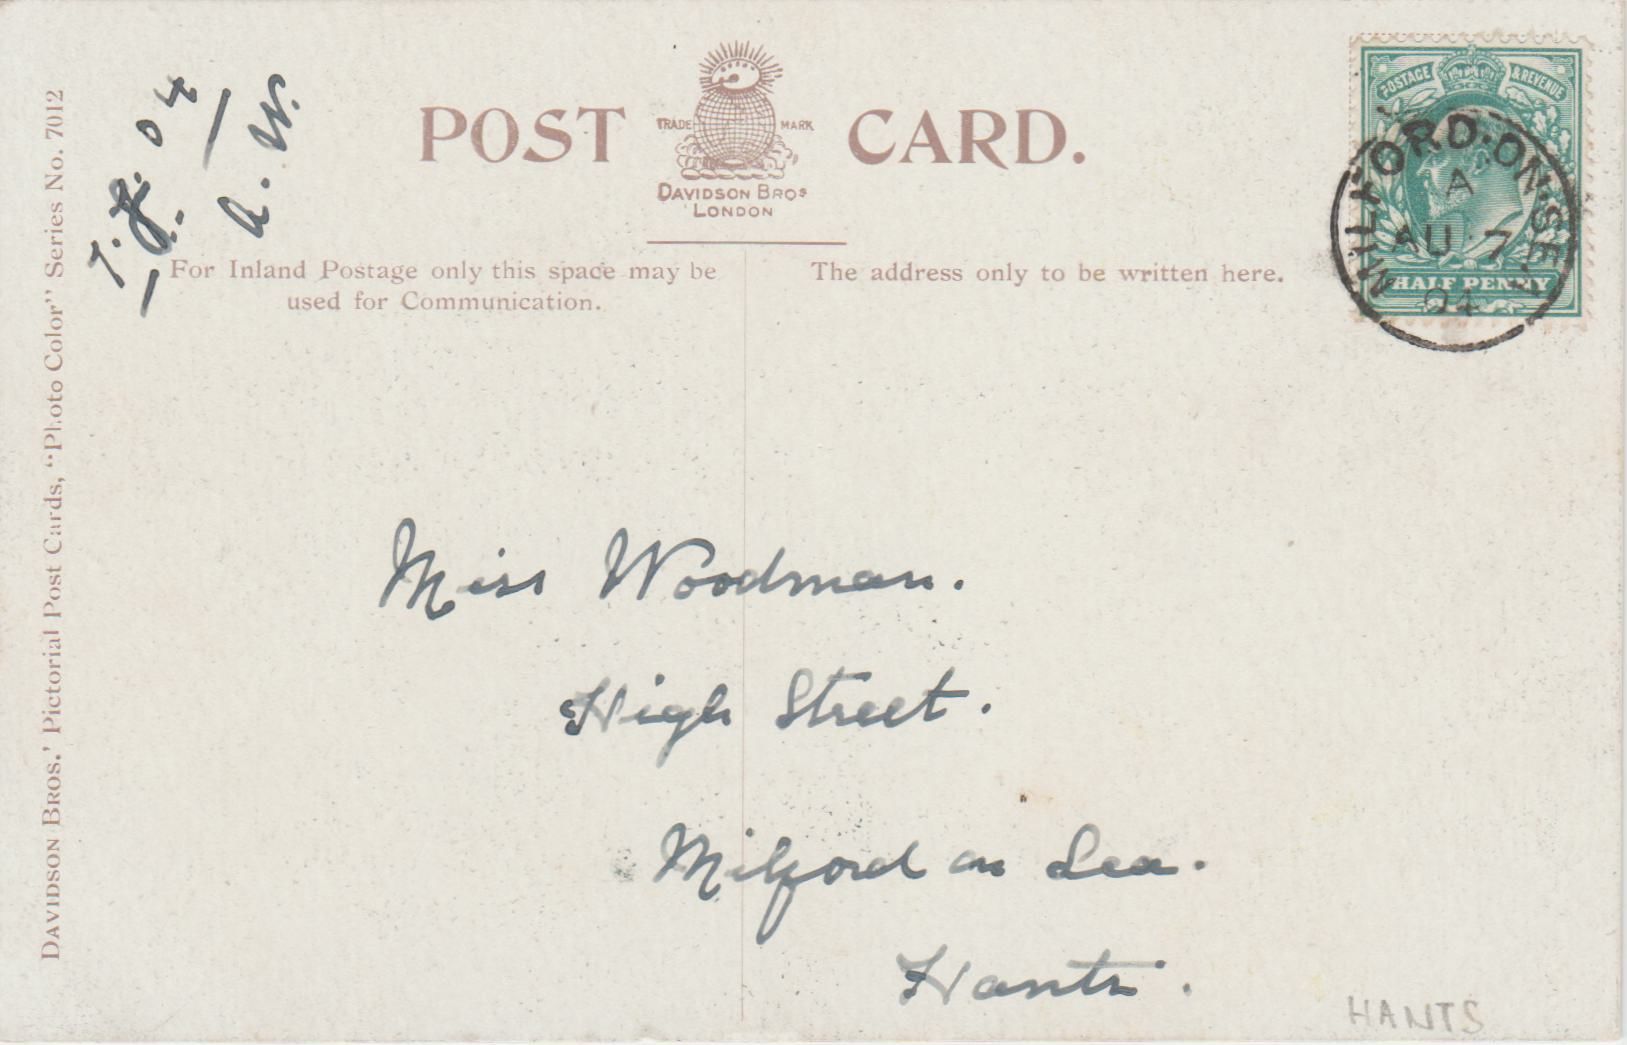 DAVIDSON BROS.' Pictorial Post Cards, "Photo Color" Series No. 7012
7. 8. 04
A. W.
POST CARD.
TRADE MARK
DAVIDSON BROS
LONDON
For Inland Postage only this space may be
used for Communication.
The address only to be written here.
POSTAGE & REVENUE
HALF PENNY
MILFORD·ON·SEA
A
AU 7
04
Miss Woodman.
High Street.
Milford on Sea.
Hants.
HANTS